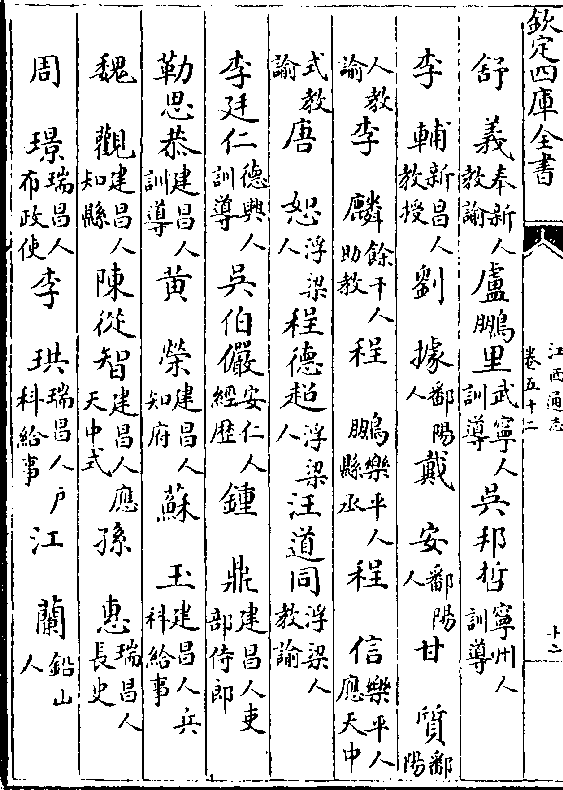 欽定四庫全書
江西通志
卷五十二
十二
舒義奉新人教諭 盧鵬里武寧人訓導 吳邦哲寧州人訓導
李輔新昌人教授 劉據鄱陽人 戴安鄱陽人 甘質鄱陽
人教諭 李麟餘干人助教 程鵬樂平人縣丞 程信樂平人應天中
式教諭 唐恕浮梁人 程德超浮梁人 汪道同浮梁人教諭
李廷仁德興人訓導 吳伯儼安仁人經歷 鍾鼎建昌人吏部侍郎
勒思恭建昌人訓導 黃榮建昌人知府 蘇玉建昌人兵科給事
魏觀建昌人知縣 陳從智建昌人應天中式 孫惠瑞昌人長史
周璟瑞昌人布政使 李珙瑞昌人戶科給事 江蘭鉛山人